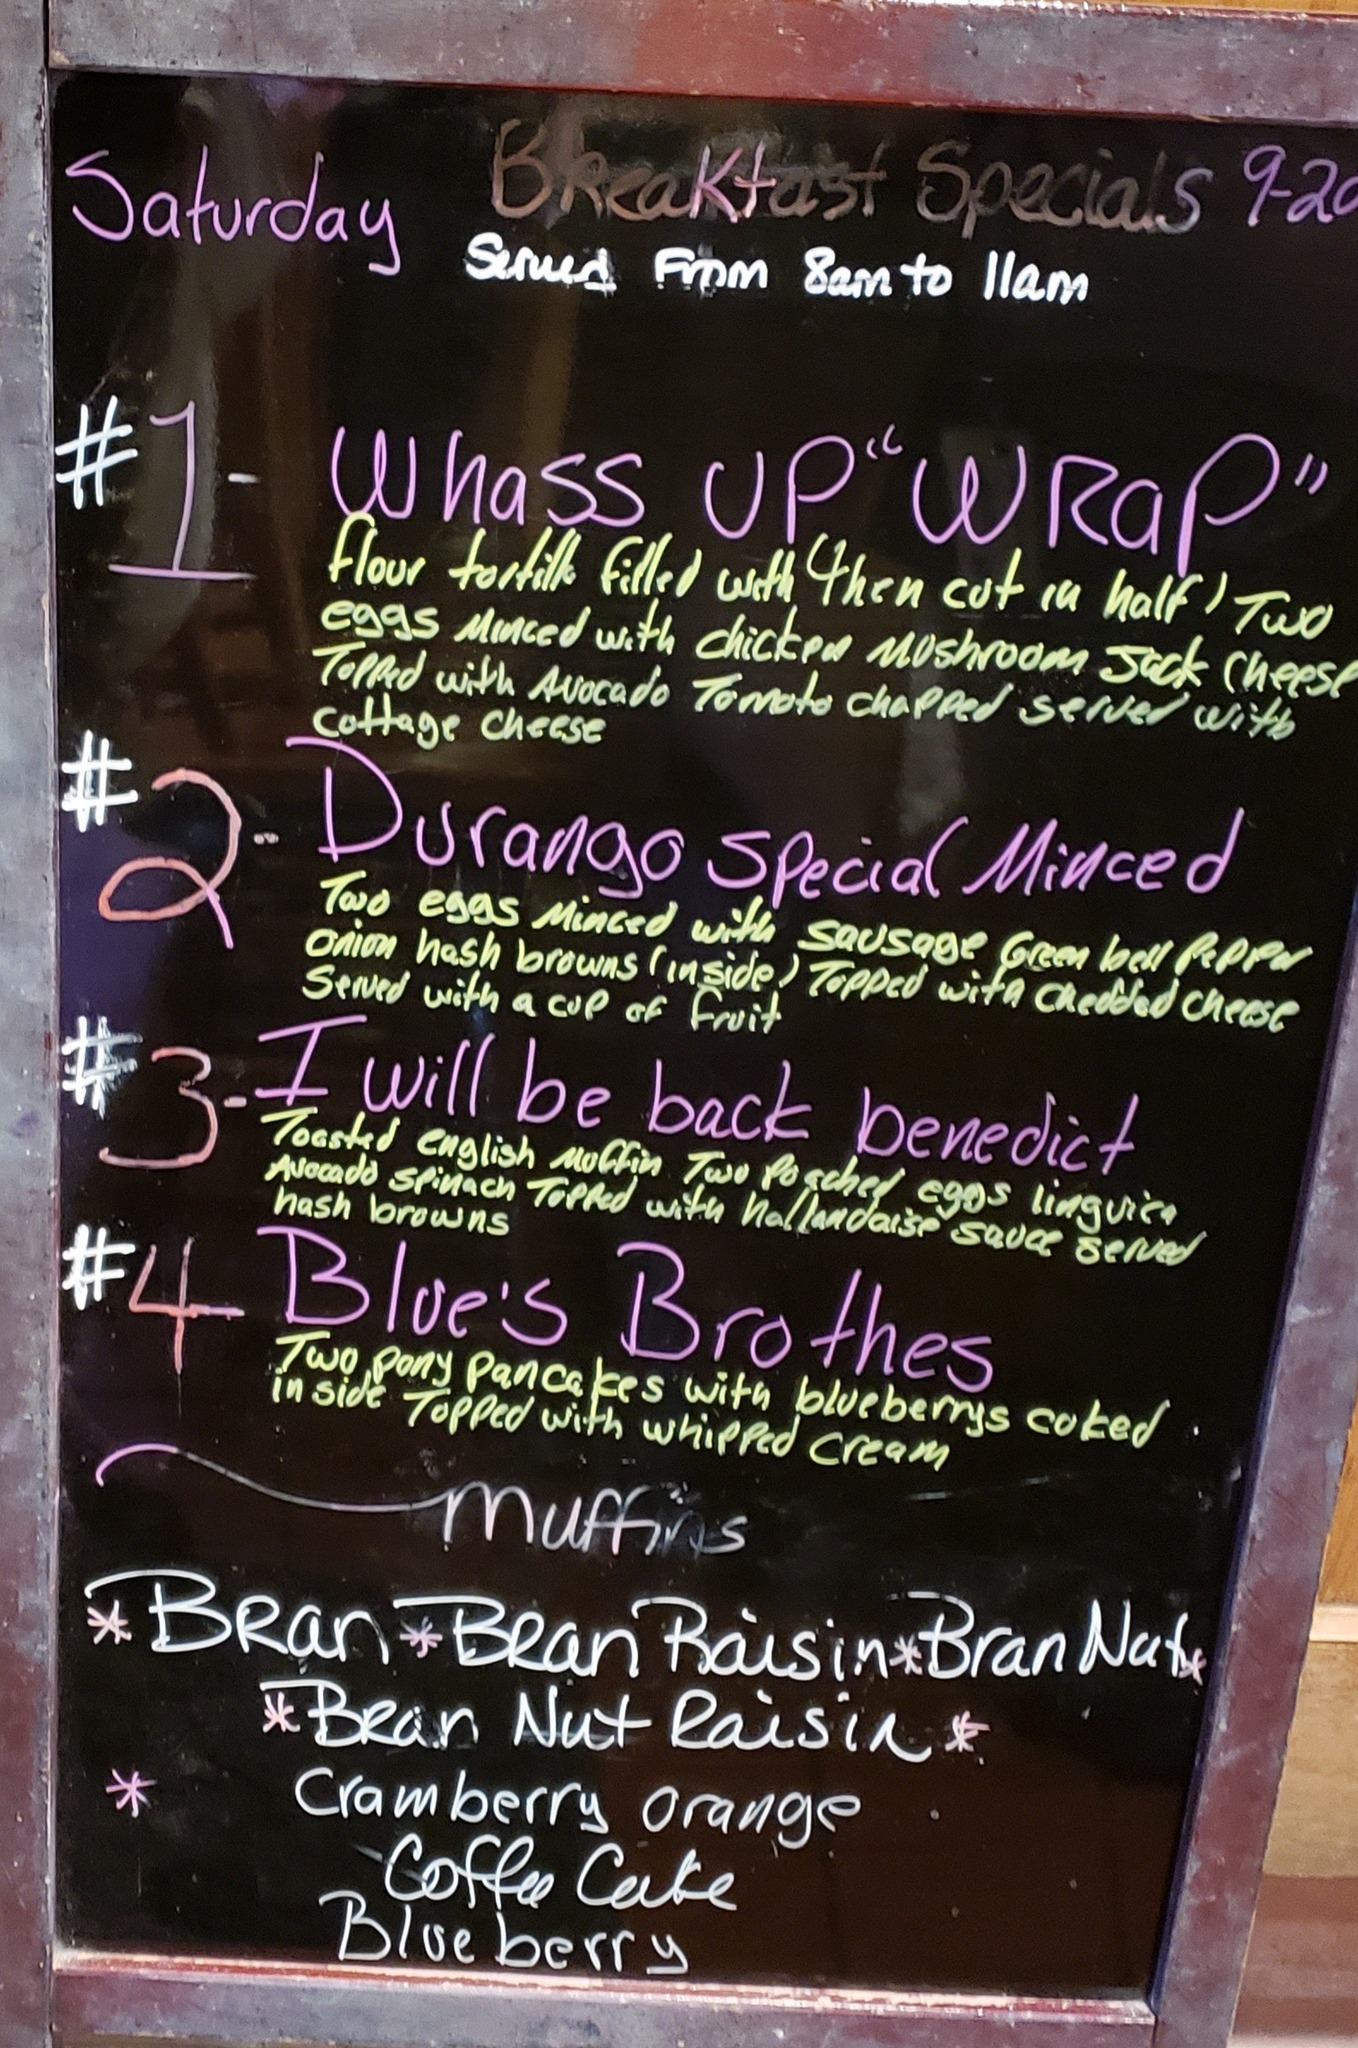 Saturday Breakfast Specials 9-20
Served From 8am to 11am
#1- Whass UP "WRaP"
flour tortilla filled with (then cut in half) Two
eggs Minced with chicken Mushroom Jack Cheese
Topped with Avocado Tomato chopped served with
cottage cheese
#2- Durango Special Minced
Two eggs Minced with sausage Green bell Pepper
onion hash browns (inside) Topped with Chedded cheese
Served with a cup of fruit
#3- I will be back benedict
Toasted english Muffin Two Poached eggs linguica
Avocado Spinach Topped with hallandaise sauce served
hash browns
#4 Blue's Brothes
Two pony pancakes with blueberrys coked
inside Topped with whipped cream
Muffins
* Bran * Bran Raisin * Bran Nut *
* Bran Nut Raisin *
* Cramberry orange
Coffee Cake
Blueberry